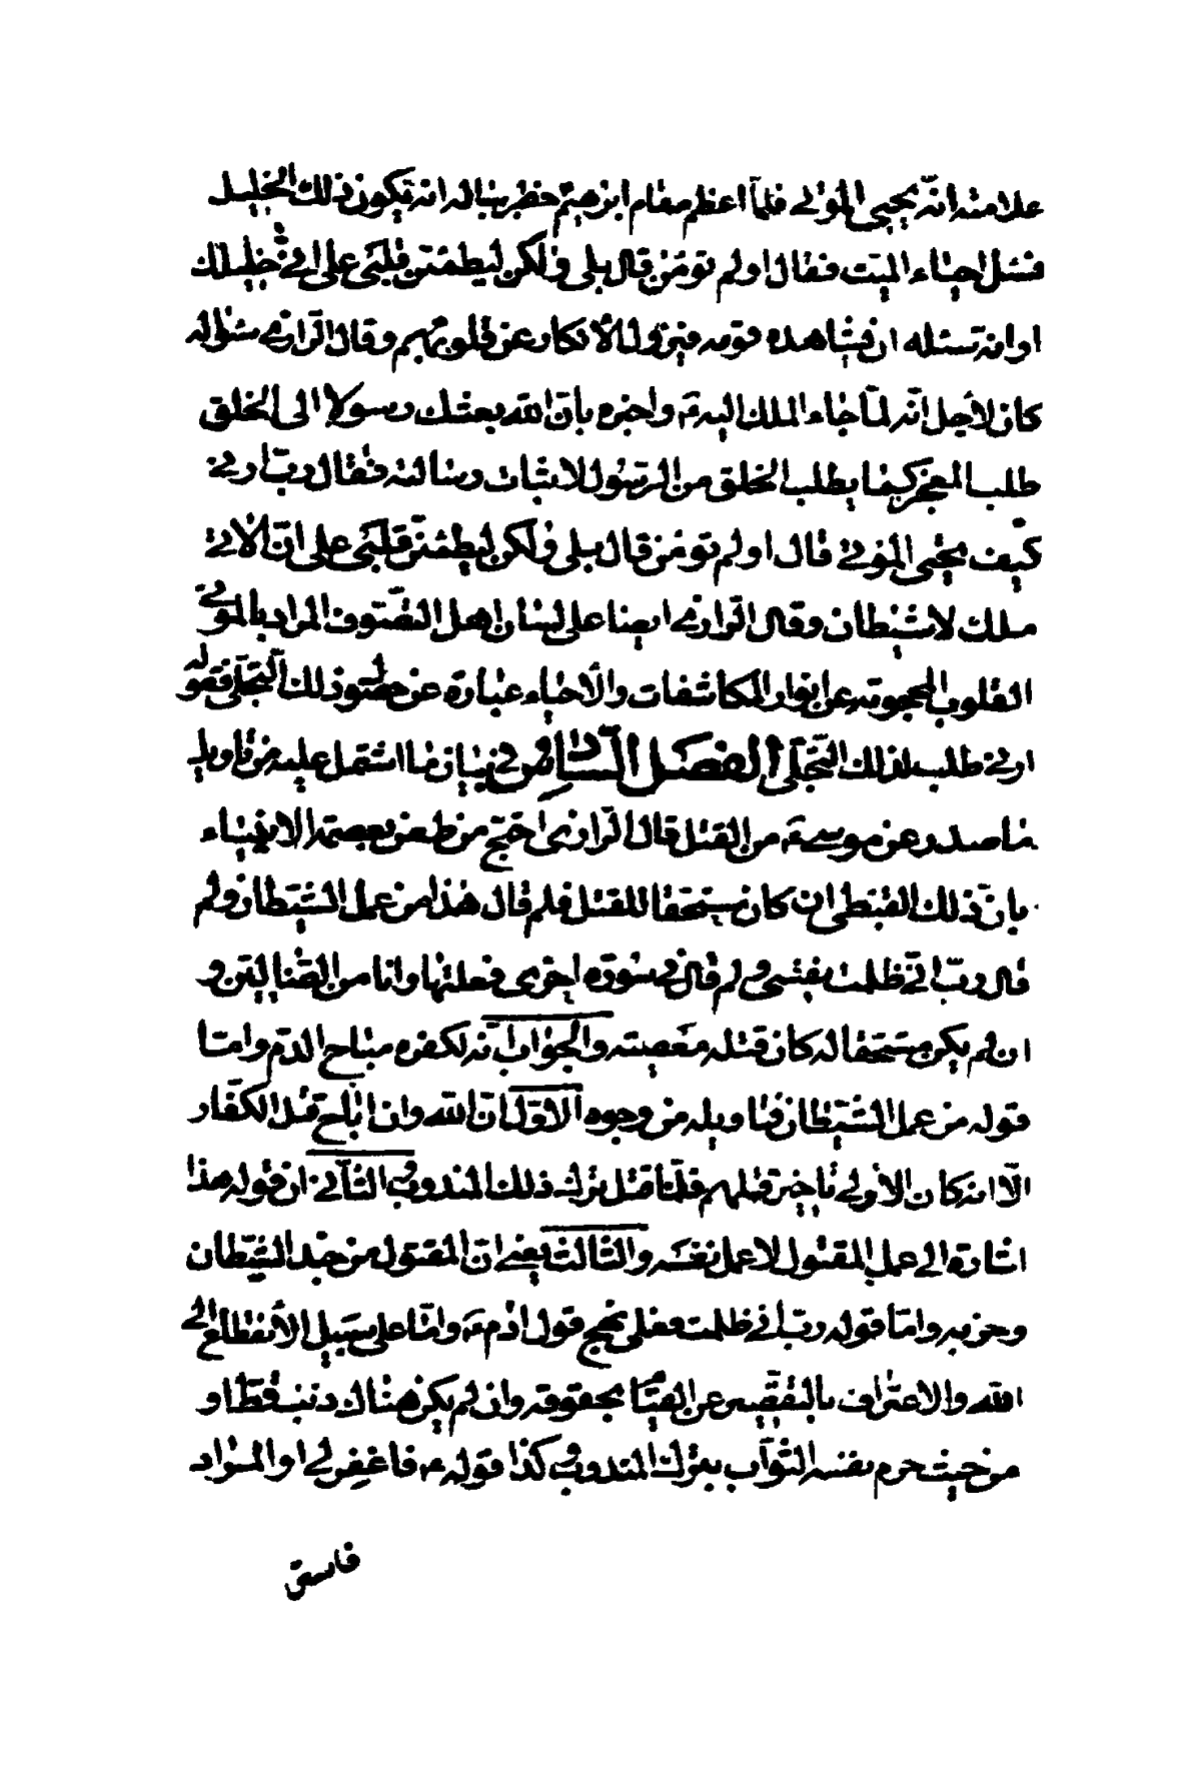 علامته انّه يحيي الموتى فلمّا اعظم مقام ابرهيم خطر بباله انه يكون ذلك الخليل
فسئل احياء الميّت فقال اولم تؤمن قال بلى ولكن ليطمئن قلبي على انى خليلك
اوانه تسئله ان فيشاهده قومه فيزول الأنكار عن قلوبهم وقال الرازى سئواله
كان لأجل انّه لمّا جاء الملك اليه ع واخبره بانّ الله بعثك رسولا الى الخلق
طلب المعجز كما يطلب الخلق من الرّسول لاثبات رسالته فقال ربّ ارنى
كيف تحيى الموتى قال اولم تؤمن قال بلى ولكن ليطمئنّ قلبي على انّ الاتى
ملك لا شيطان وقال الرازى ايضا على لسان اهل التصّوف المراد بالموتى
القلوب المحجوبة عن انوار المكاشفات والأحياء عبارة عن حصول ذلك التجلّى فقوله
ارنى طلب لذلك التّجلّى الفصل السّادس فى بيان ما اشتمل عليه من تاويل
ما صدر عن موسى ع من القتل قال الرازى احتجّ من طعن بعصمة الانبياء
بانّ ذلك القبطى ان كان مستحقا للقتل فلم قال هذا من عمل الشّيطان ولم
قال ربّ انّى ظلمت نفسى ولم قال فى سورة اخرى فعلتها وانا من الضّالين و
ان لم يكن مستحقا له كان قتله معصيته والجواب انّه لكفره مباح الدّم وامّا
قوله من عمل الشّيطان فتاويله من وجوه الاوّل انّ الله وان اباح قتل الكفّار
الّا انه كان الأولى تاخير قتلهم فلمّا قتل ترك ذلك المندوب الثّانى ان قوله هذا
اشارة الى عمل المقتول لا عمل نفسه والثالث يعنى انّ المقتول من جند الشّيطان
وحزبه وامّا قوله ربّ انى ظلمت فعلى نهج قول ادم ع وامّا على سبيل الأنقطاع الى
الله والاعتراف بالتقصير عن القيام بحقوقه وان لم يكن هناك ذنب قطّ او
من حيث حرم نفسه الثّواب بترك المندوب وكذا قوله ع فاغفر لى او المراد